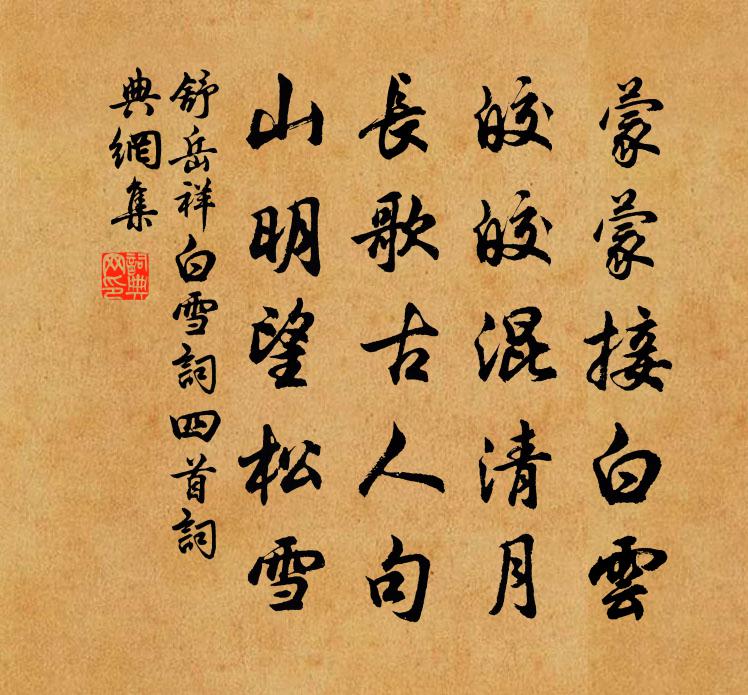 蒙蒙接白雲
皎皎混清月
長歌古人句
山明望松雪
舒岳祥白雪詞四首詞
典網集
詞典
网印